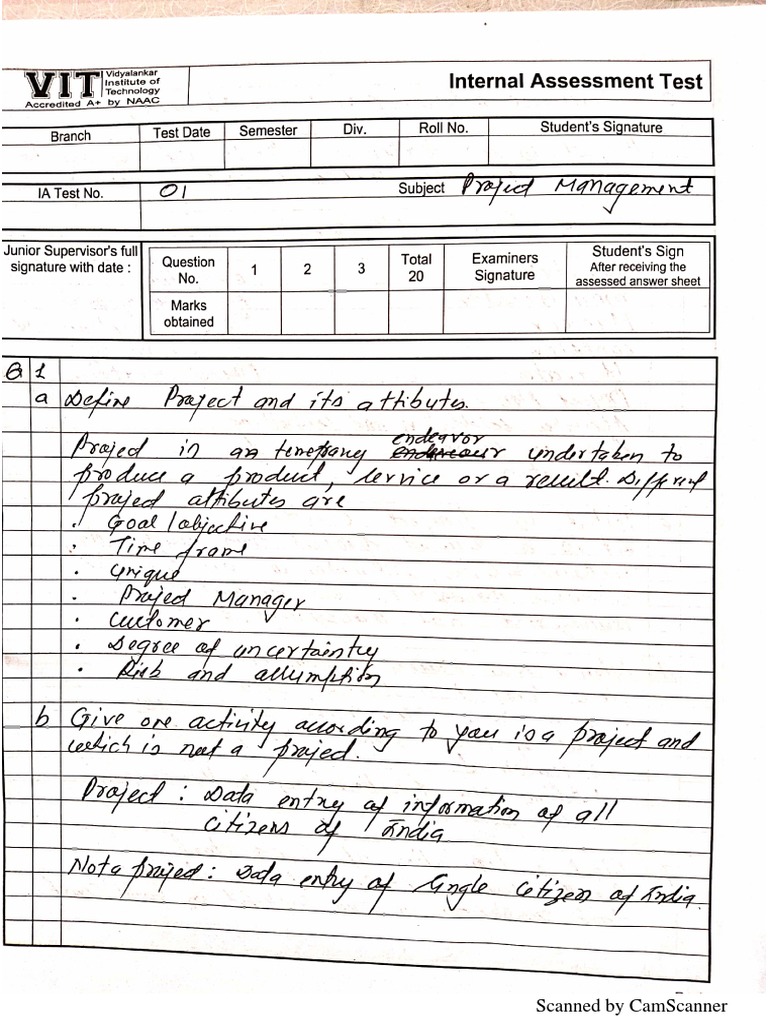 VIT Vidyalankar
Institute of
Technology
Accredited A+ by NAAC
Internal Assessment Test
Branch Test Date Semester Div. Roll No. Student's Signature
IA Test No. 01 Subject Project Management
Junior Supervisor's full
signature with date :
Question
No. 1 2 3 Total
20 Examiners
Signature Student's Sign
After receiving the
assessed answer sheet
Marks
obtained
Q 1
a Define Project and its attibutes.
Project is an temeprary endeavor undertaken to
produce a product, service or a result. Different
project attibutes are
• Goal / objective
• Time frame
• Unique
• Project Manager
• Customer
• Degree of uncertainty
• Risk and assumption
b Give one activity according to you is a project and
which is not a project.
Project : Data entry of information of all
citizens of India
Not a project : Data entry of single citizen of India.
Scanned by CamScanner